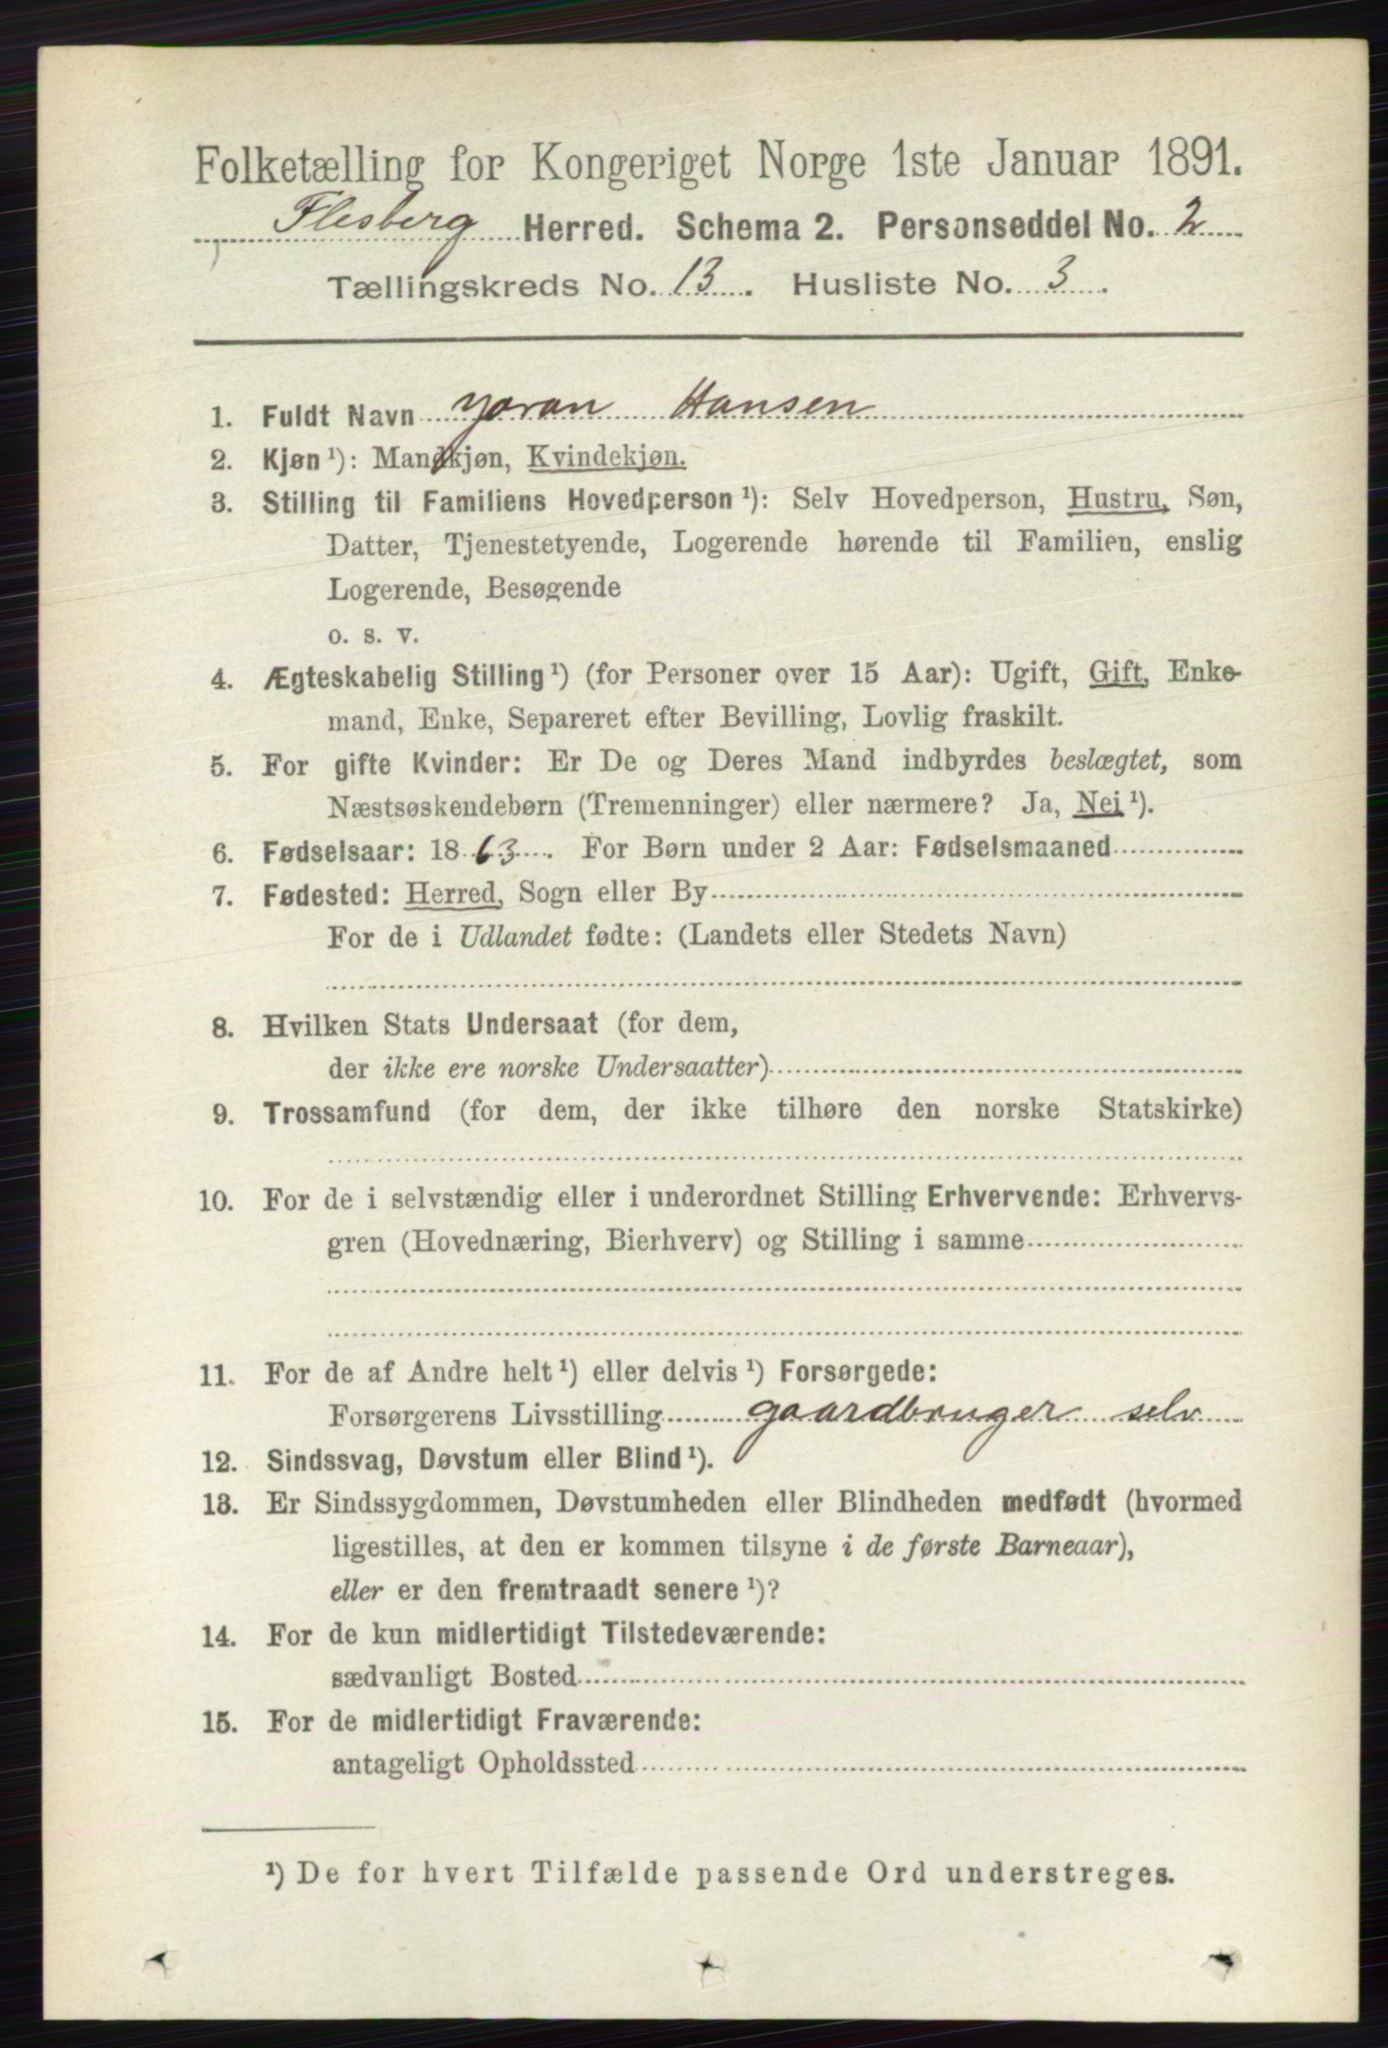 Folketælling for Kongeriget Norge 1ste Januar 1891.
Flesberg Herred. Schema 2. Personseddel No. 2
Tællingskreds No. 13. Husliste No. 3.
1. Fuldt Navn Yoran Hansen
2. Kjøn¹): Mandkjøn, Kvindekjøn.
3. Stilling til Familiens Hovedperson¹): Selv Hovedperson, Hustru, Søn,
Datter, Tjenestetyende, Logerende hørende til Familien, enslig
Logerende, Besøgende
o. s. v.
4. Ægteskabelig Stilling¹) (for Personer over 15 Aar): Ugift, Gift, Enke-
mand, Enke, Separeret efter Bevilling, Lovlig fraskilt.
5. For gifte Kvinder: Er De og Deres Mand indbyrdes beslægtet, som
Næstsøskendebørn (Tremenninger) eller nærmere? Ja, Nei¹).
6. Fødselsaar: 1863. For Børn under 2 Aar: Fødselsmaaned
7. Fødested: Herred, Sogn eller By
For de i Udlandet fødte: (Landets eller Stedets Navn)
8. Hvilken Stats Undersaat (for dem,
der ikke ere norske Undersaatter)
9. Trossamfund (for dem, der ikke tilhøre den norske Statskirke)
10. For de i selvstændig eller i underordnet Stilling Erhvervende: Erhvervs-
gren (Hovednæring, Bierhverv) og Stilling i samme
11. For de af Andre helt¹) eller delvis¹) Forsørgede:
Forsørgerens Livsstilling gaardbruger selv
12. Sindssvag, Døvstum eller Blind¹).
13. Er Sindssygdommen, Døvstumheden eller Blindheden medfødt (hvormed
ligestilles, at den er kommen tilsyne i de første Barneaar),
eller er den fremtraadt senere¹)?
14. For de kun midlertidigt Tilstedeværende:
sædvanligt Bosted
15. For de midlertidigt Fraværende:
antageligt Opholdssted
¹) De for hvert Tilfælde passende Ord understreges.